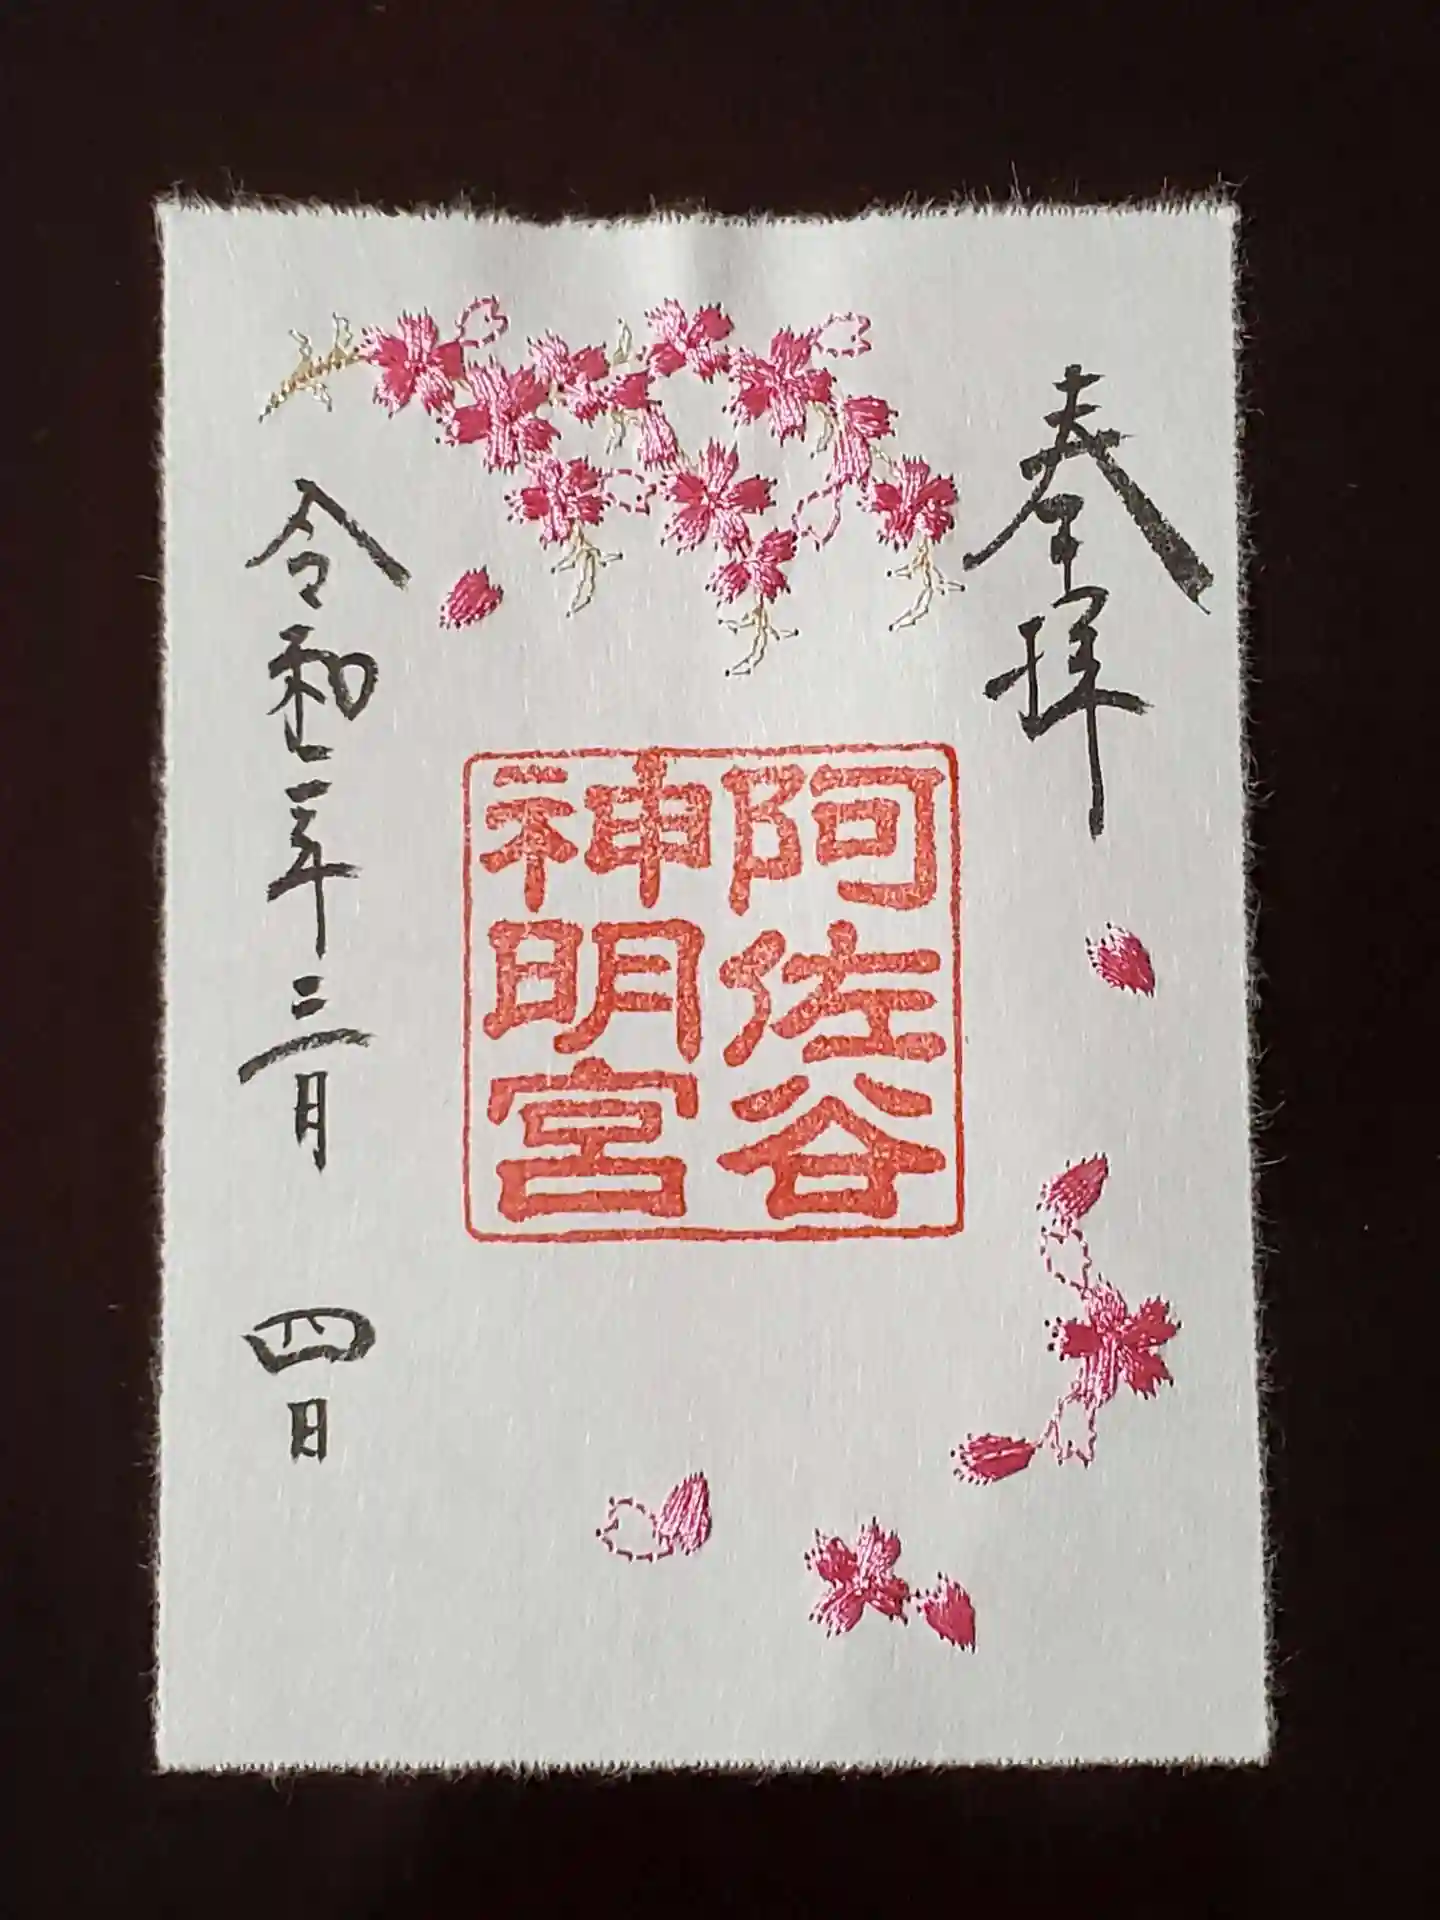 奉拝
阿佐谷
神明宮
令和二年三月四日